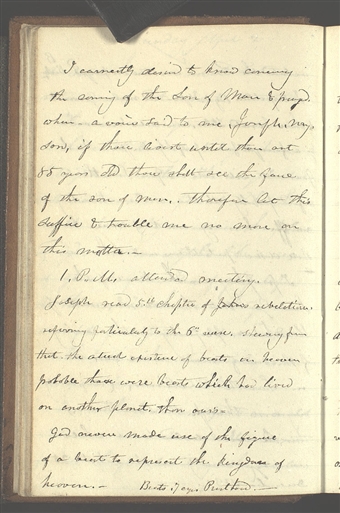 I earnestly desird to know concernig
the coming of the Son of Man & prayd.
when - a voice said to me, Joseph, my
son, if thou livest until thou art
85 years old thou shalt see the face
of the son of man.. therefore let this
suffice & trouble me no more on
this matter.-
1. P.M. attended meeting.
Joseph read 5th chapter of revelation.
refering particularly to the 6th verse. shewing from
that the actual existence of beasts in heaven
probable those were beasts which had lived
on another planet. than ours-
God never made use of the figure
of a beast to represent the kingdom of
heaven.- Beasts. 7. eyes Priesthood.-